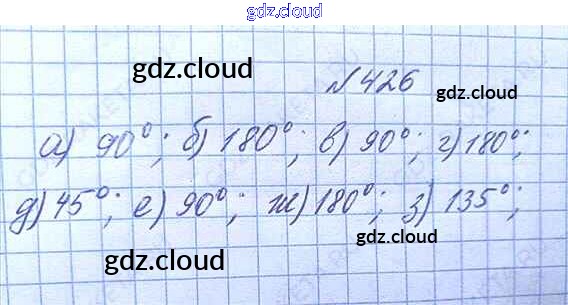 gdz.cloud
gdz.cloud
№426
gdz.cloud
а) 90°; б) 180°; в) 90°; г) 180°;
д) 45°; е) 90°; ж) 180°; з) 135°;
gdz.cloud
gdz.cloud